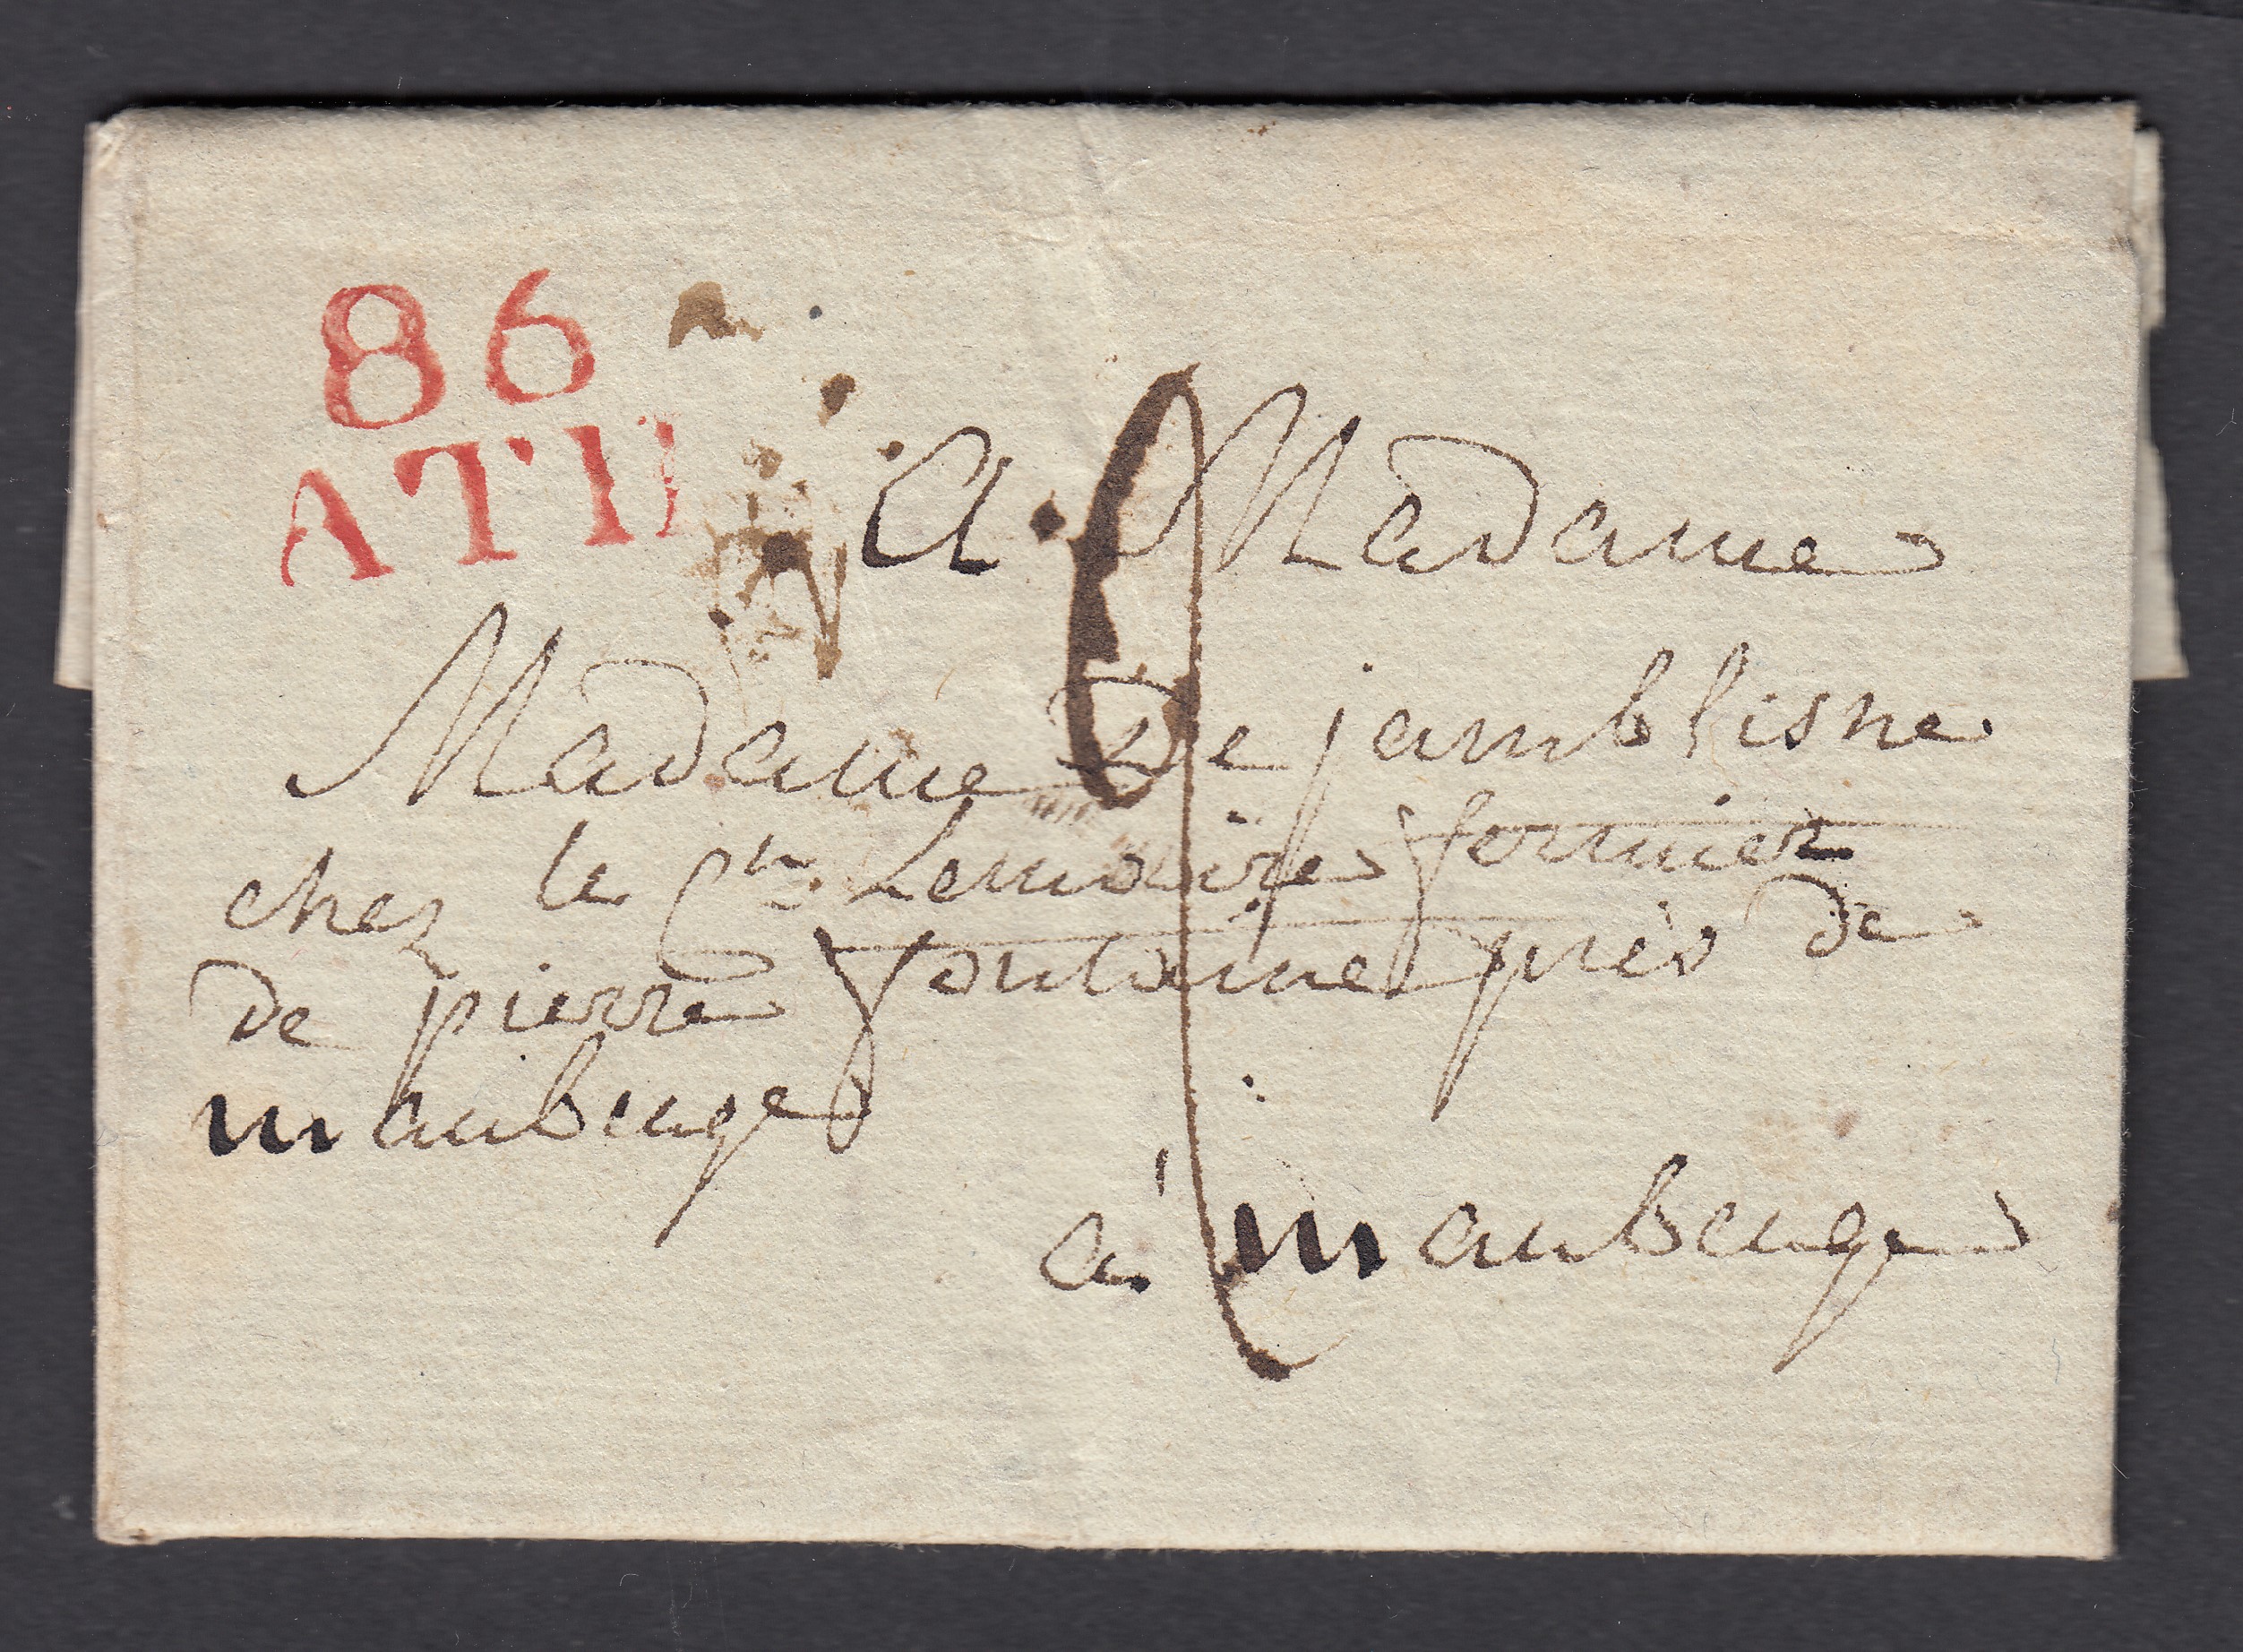 86
ATH
A Madame
Madame De jamblisne
chez le Cn. Lemaire fermier
de pierre fontaine près de
maubeuge
a maubeuge